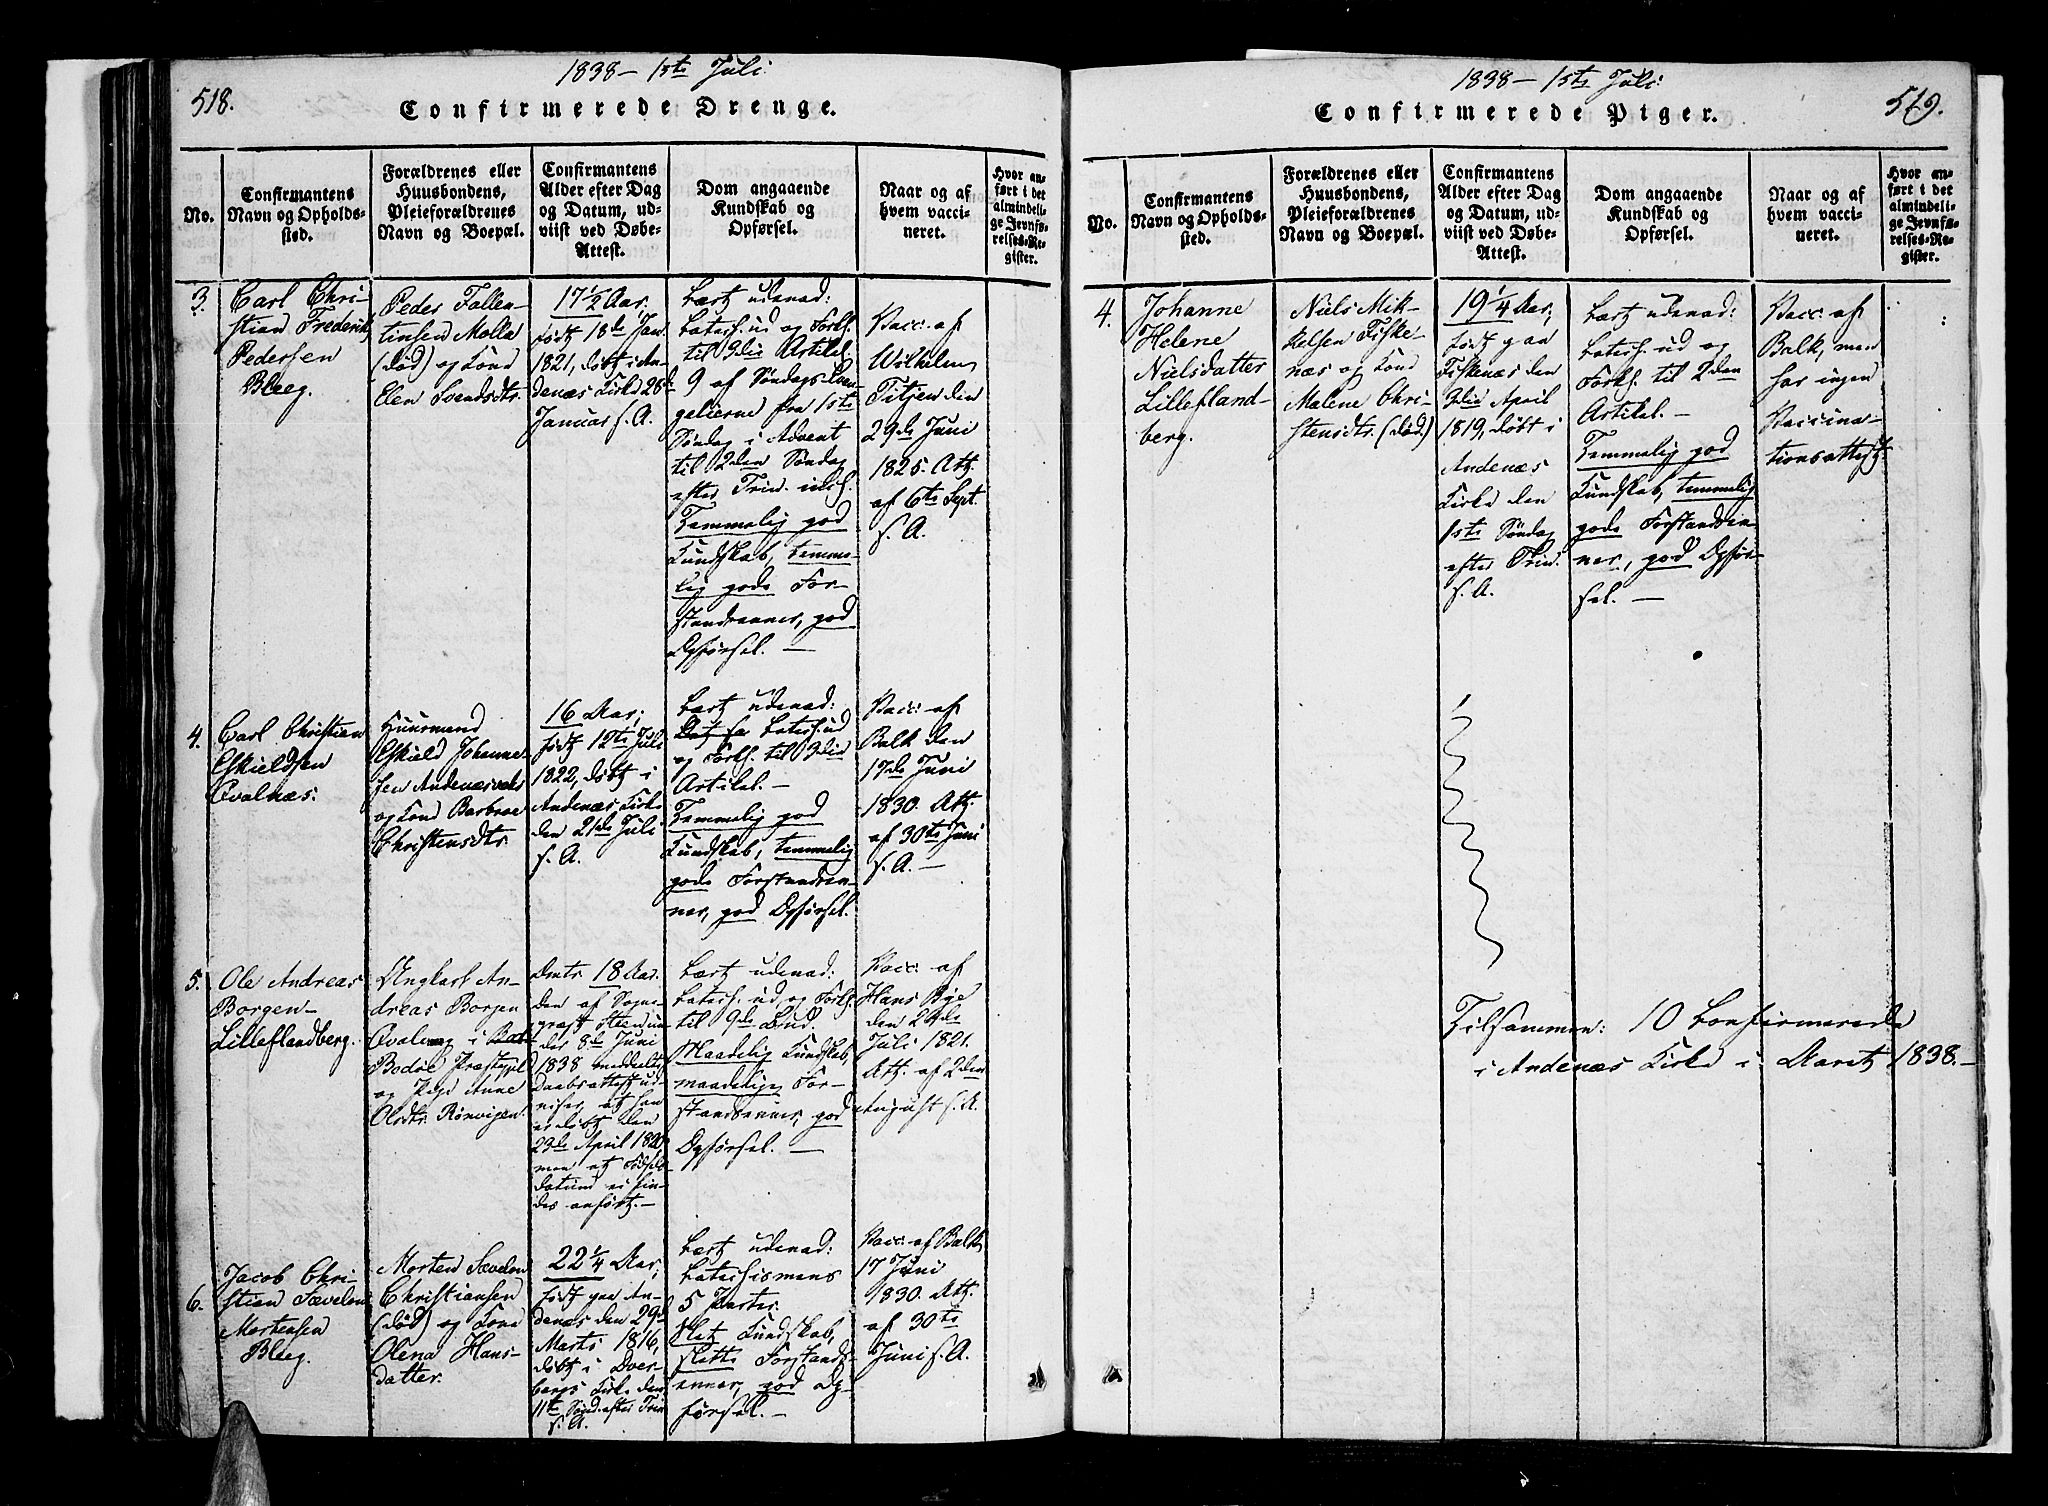 518.
1838 - 1ste Juli.
Confirmerede Drenge.
No.
Confirmantens
Navn og Opholds-
sted.
Forældrenes eller
Huusbondens,
Pleieforældrenes
Navn og Boepæl.
Confirmantens
Alder efter Dag
og Datum, ud-
viist ved Døbe-
Attest.
Dom angaaende
Kundskab og
Opførsel.
Naar og af
hvem vacci-
neret.
Hvor an-
ført i det
almindeli-
ge Jevnfø-
relses-Re-
gister.
3.
Carl Chri-
stian Frederik
Pedersen
Bleeg.
Peder Fallen-
tinsen Molla
(død) og Kone
Elen Svendsdtr.
17 1/2 Aar,
født 18de Jan.
1821, døbt i An-
denæs Kirke 28de
Januar s. A.
Lært udenad:
Catech. ud og Forkl.
til 3die Artikel
9 af Søndags-Evan-
gelierne fra 1ste
Søndag i Advent
til 2den Søndag
efter Trin. incl.
Temmelig god
Kundskab, temme-
lig gode For-
standsevner, god
Opførsel. -
Vacc. af
Wilhelm
Titjen den
29de Juni
1825. Att.
af 6te Sept.
s. A.
4.
Carl Christian
Eskieldsen
Qvalnæs.
Huusmand
Eskield Johanne-
sen Andenæs
og Kone Barbroe
Christensdtr.
16 Aar,
født 12te Juli
1822, døbt i
Andenæs Kirke
den 21de Juli
s. A.
Lært udenad:
Catech. ud
og Forkl. til 3die
Artikel. -
Temmelig god
Kundskab, temmelig
gode Forstandsev-
ner, god Opførsel.
Vacc. af
Balk den
17de Juni
1830. Att.
af 30te Juni
s. A. -
5.
Ole Andreas
Borgen
Lilleflandberg.
Ungkarl An-
dreas Borgen
Qvalnæs i
Bodøe Præstegjel
og Pige Anne
Olsdtr. Rønvigen.
18 Aar.
den af Sogne-
præst Steen un-
der 8de Juni
1838 meddeelte
Daabsattest ud-
viser, at han
er døbt den
23de April 1820,
men at Fødsels-
datum ei fin-
des anført. -
Lært udenad:
Catech. ud og Forkl.
til 9de Bud.
Maadelig Kundskab,
maadelige For-
standsevner, god
Opførsel. -
Vacc. af
Hans Bye
den 24de
Juli 1821.
Att. af 2den
August s. A.
6.
Jacob Chri-
stian Sævelin
Mortensen
Bleeg.
Morten Sævelin
Christiansen
(død) og Kone
Olena Hans-
datter.
22 1/4 Aar,
født paa An-
denæs den 29de
Marts 1816,
døbt i Dver-
bergs Kirke den
11te Sønd. efter Trin.
s. A.
Lært udenad:
Catechismens
5 Parter.
Slet Kundskab,
slette Forstands-
evner, god Op-
førsel. -
Vacc. af Balk
17 Juni
1830. Att.
af 30te
Juni s. A.
519.
1838 - 1ste Juli.
Confirmerede Piger.
No.
Confirmantens
Navn og Opholds-
sted.
Forældrenes eller
Huusbondens,
Pleieforældrenes
Navn og Boepæl.
Confirmantens
Alder efter Dag
og Datum, ud-
viist ved Døbe-
Attest.
Dom angaaende
Kundskab og
Opførsel.
Naar og af
hvem vacci-
neret.
Hvor an-
ført i det
almindeli-
ge Jevnfø-
relses-Re-
gister.
4.
Johanne
Helene
Nielsdatter
Lillefland-
berg.
Niels Mik-
kelsen Fiske-
næs og Kone
Malene Chri-
stensdtr. (død.)
19 1/4 Aar,
født paa
Fiskenæs den
3die April
1819, døbt i
Andenæs
Kirke den
1ste Søndag
efter Trin.
s. A.
Lært udenad:
Catech. ud og
Forkl. til 2den
Artikel. -
Temmelig god
Kundskab, temmelig
gode Forstandsev-
ner, god Opfør-
sel. -
Vacc. af
Balk, men
har ingen
Vaccina-
tionsattest.
Tilsammen: 10 Confirmerede
i Andenæs Kirke i Aaret 1838. -